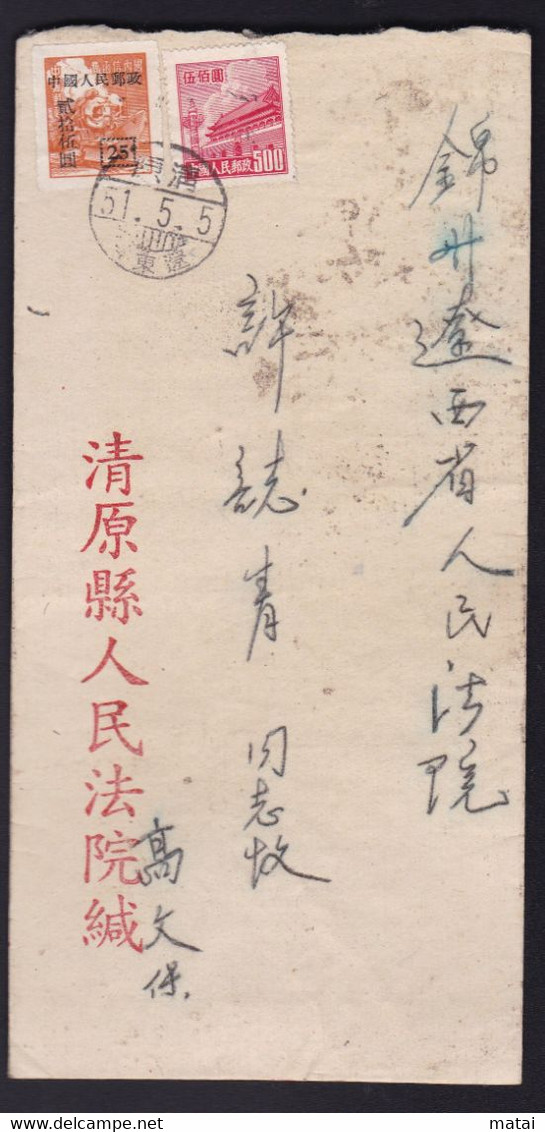 錦州遼西省人民法院
許誌青 同志收
清原縣人民法院緘
高文保.
中國人民郵政
貳拾伍圓
25
伍佰圓
中國人民郵政500
清原
51.5.5
遼東
matai